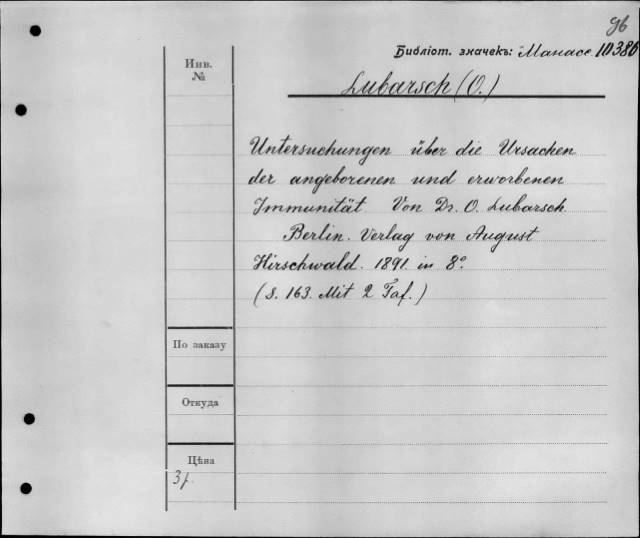 96
Библіот. значекъ: Манасс. 10386
Инв.
№
Lubarsch (O.)
Untersuchungen über die Ursachen
der angeborenen und erworbenen
Immunität. Von Dr. O. Lubarsch.
Berlin. Verlag von August
Hirschwald. 1891. in 8º.
(S. 163. Mit 2 Taf.)
По заказу
Откуда
Цѣна
3 р.